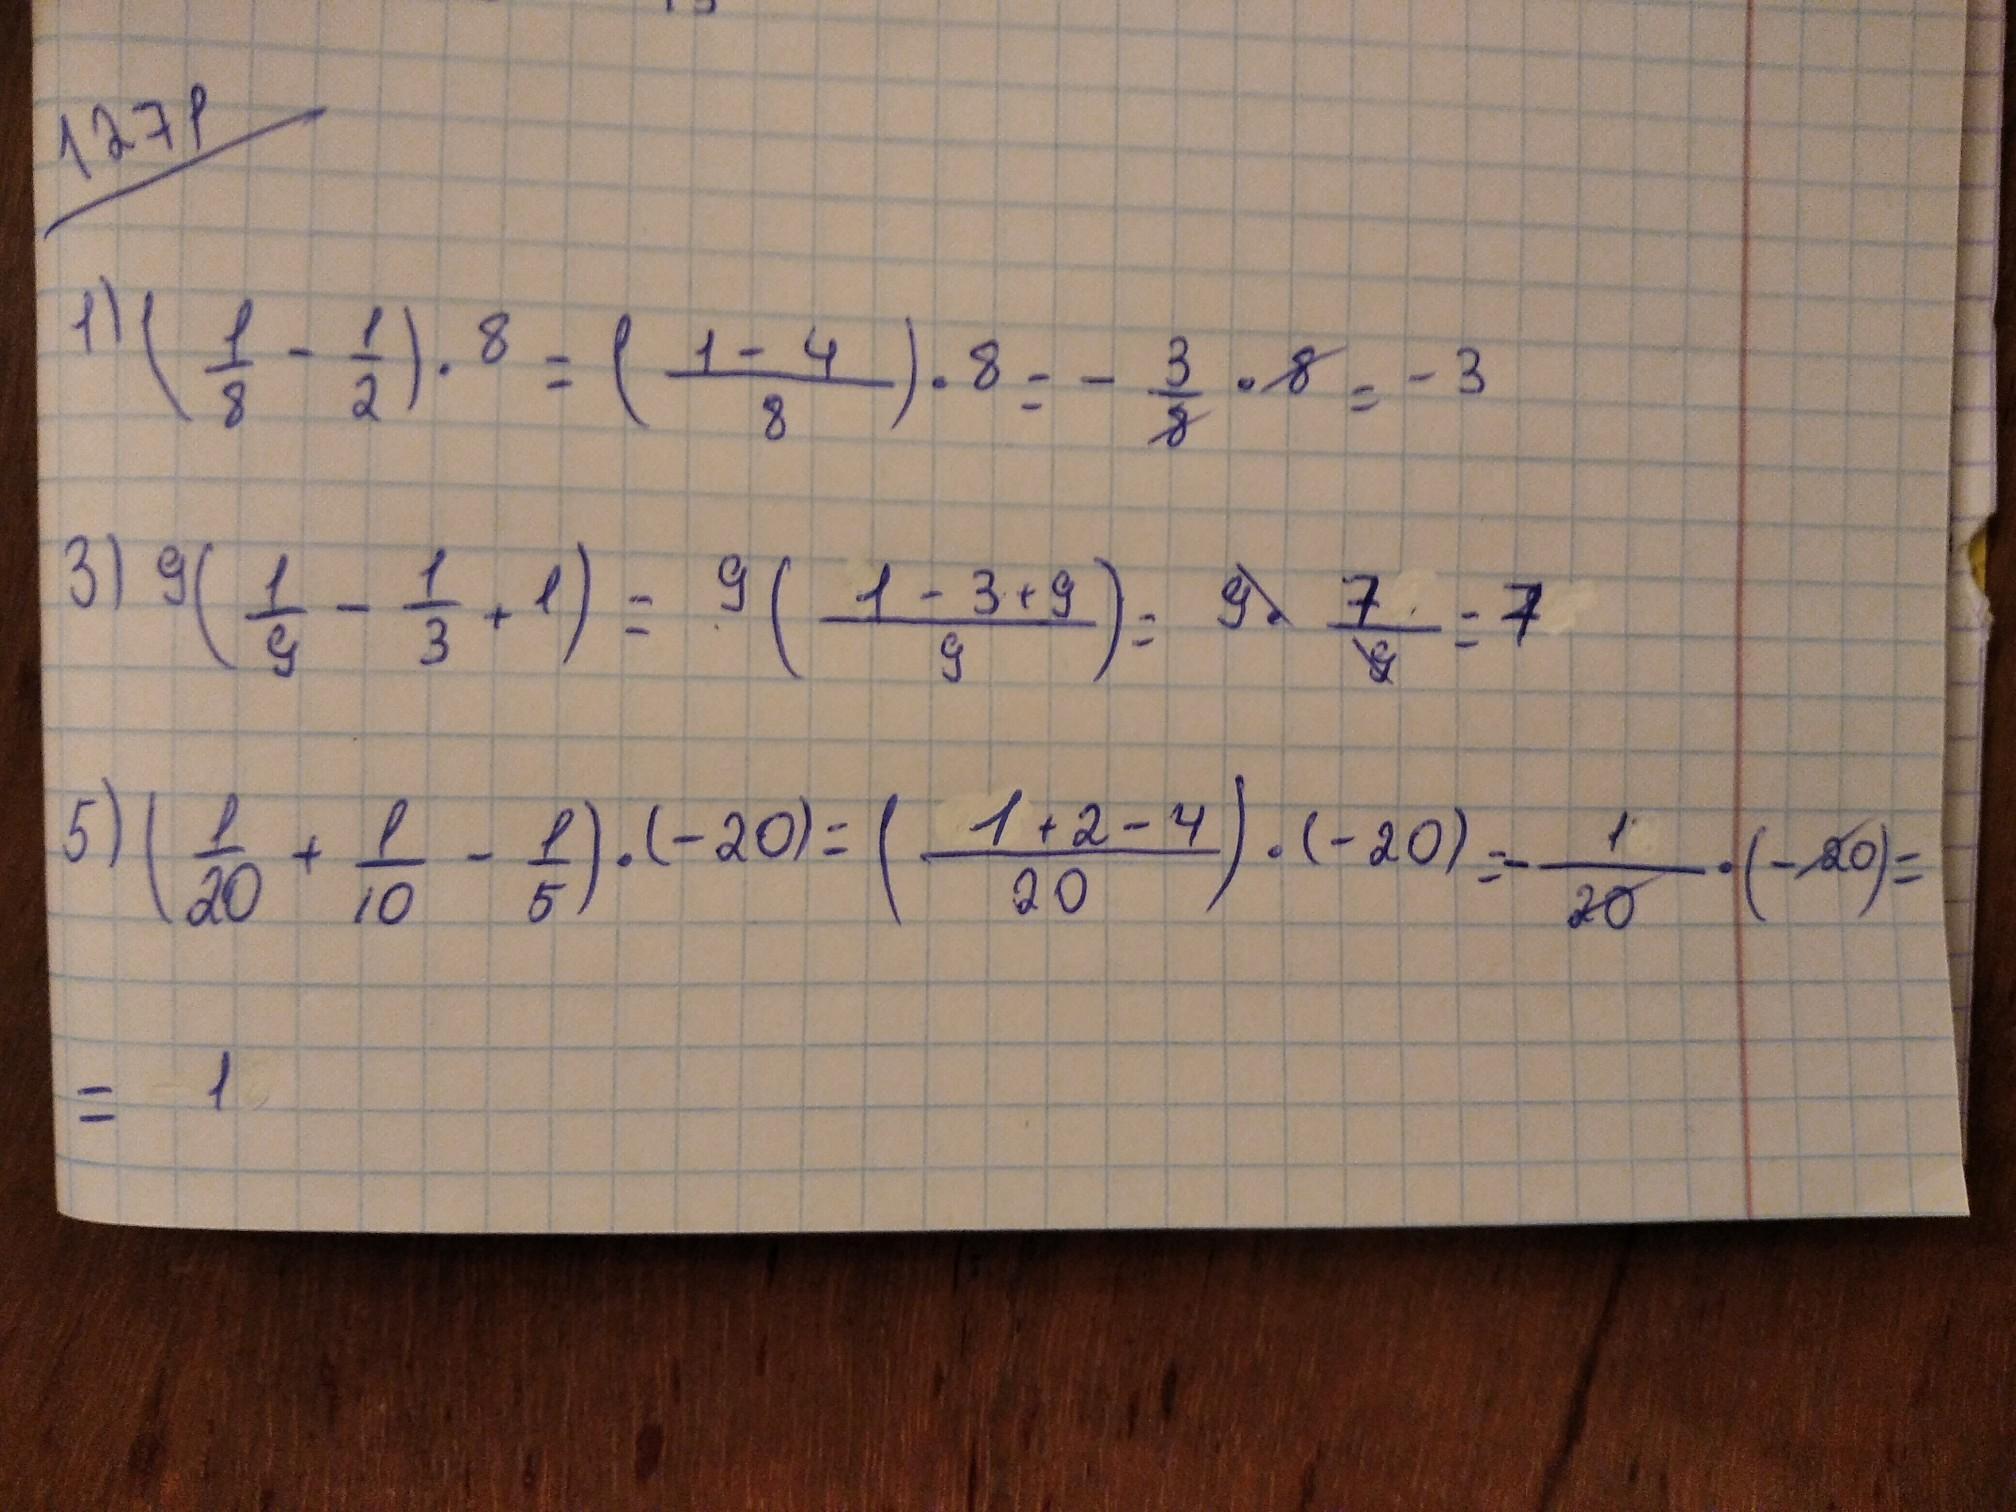 1271
1) (1/8 - 1/2) · 8 = ((1 - 4)/8) · 8 = - 3/8 · 8 = - 3
3) 9(1/9 - 1/3 + 1) = 9((1 - 3 + 9)/9) = 9 · 7/9 = 7
5) (1/20 + 1/10 - 1/5) · (-20) = ((1 + 2 - 4)/20) · (-20) = - 1/20 · (-20) =
= 1